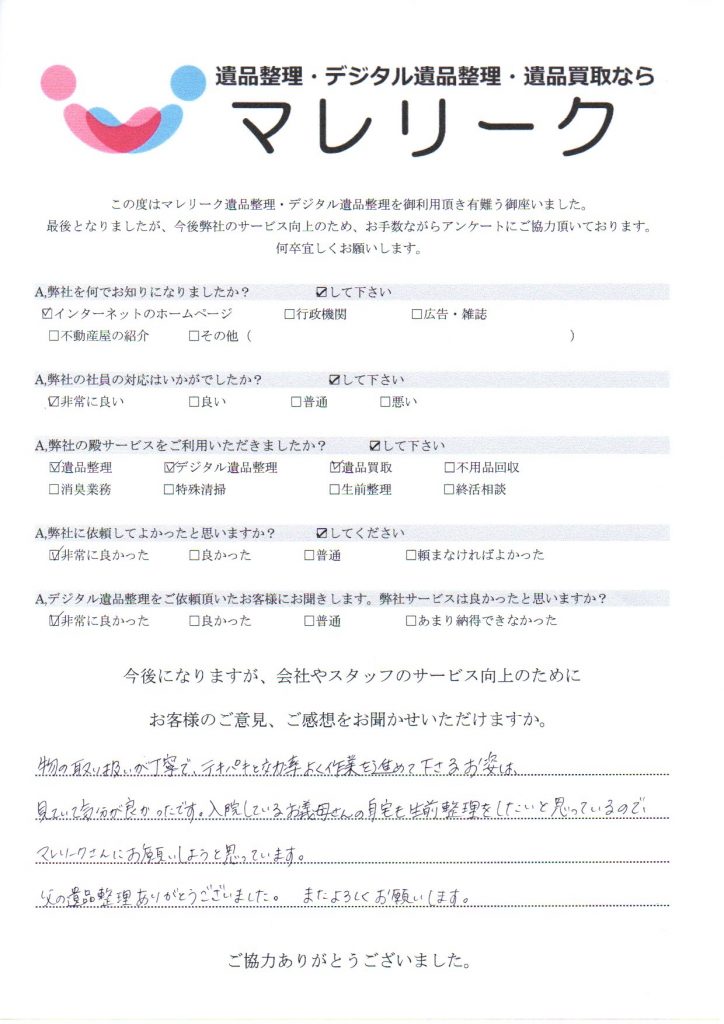 遺品整理・デジタル遺品整理・遺品買取なら
マレリーク
この度はマレリーク遺品整理・デジタル遺品整理を御利用頂き有難う御座いました。
最後となりましたが、今後弊社のサービス向上のため、お手数ながらアンケートにご協力頂いております。
何卒宜しくお願いします。
A,弊社を何でお知りになりましたか？ ☑して下さい
☑インターネットのホームページ □行政機関 □広告・雑誌
□不動産屋の紹介 □その他（ ）
A,弊社の社員の対応はいかがでしたか？ ☑して下さい
☑非常に良い □良い □普通 □悪い
A,弊社の殿サービスをご利用いただきましたか？ ☑して下さい
☑遺品整理 ☑デジタル遺品整理 ☑遺品買取 □不用品回収
□消臭業務 □特殊清掃 □生前整理 □終活相談
A,弊社に依頼してよかったと思いますか？ ☑してください
☑非常に良かった □良かった □普通 □頼まなければよかった
A,デジタル遺品整理をご依頼頂いたお客様にお聞きします。弊社サービスは良かったと思いますか？
☑非常に良かった □良かった □普通 □あまり納得できなかった
今後になりますが、会社やスタッフのサービス向上のために
お客様のご意見、ご感想をお聞かせいただけますか。
物の取り扱いが丁寧で、テキパキと効率よく作業を進めて下さるお姿は、
見ていて気分が良かったです。入院しているお義母さんの自宅も生前整理をしたいと思っているので、
マレリークさんにお願いしようと思っています。
父の遺品整理ありがとうございました。 またよろしくお願いします。
ご協力ありがとうございました。